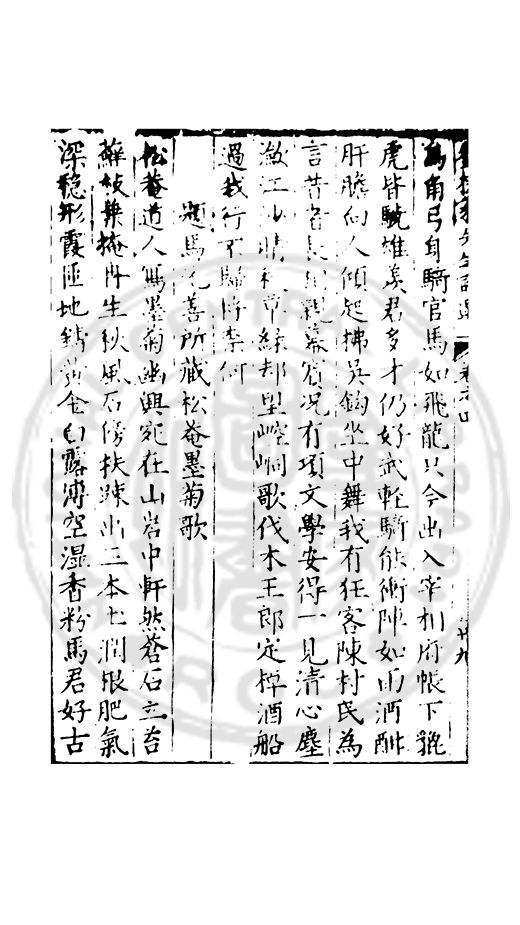 角弓自騎官馬如飛龍只今出入宰相府帳下貔
虎皆驍雄羨君多才仍好武輕騎能衝陣如雨酒酣
肝膽向人傾起拂吳鈎坐中舞我有狂客陳村民為
言昔客長親幕賓況有項文學安得一見清心塵
江晴秋草綠却望崆峒歌伐木王郎定棹酒船
過我行不歸將奈何
題馬善所藏松菴墨菊歌
松菴道人寫墨菊幽興宛在山岩中軒然蒼石立苔
蘚枝葉掩冉生秋風石傍扶踈出三本土潤根肥氣
深穩形霞匝地鑄黃金白露溥空濕香粉馬君好古